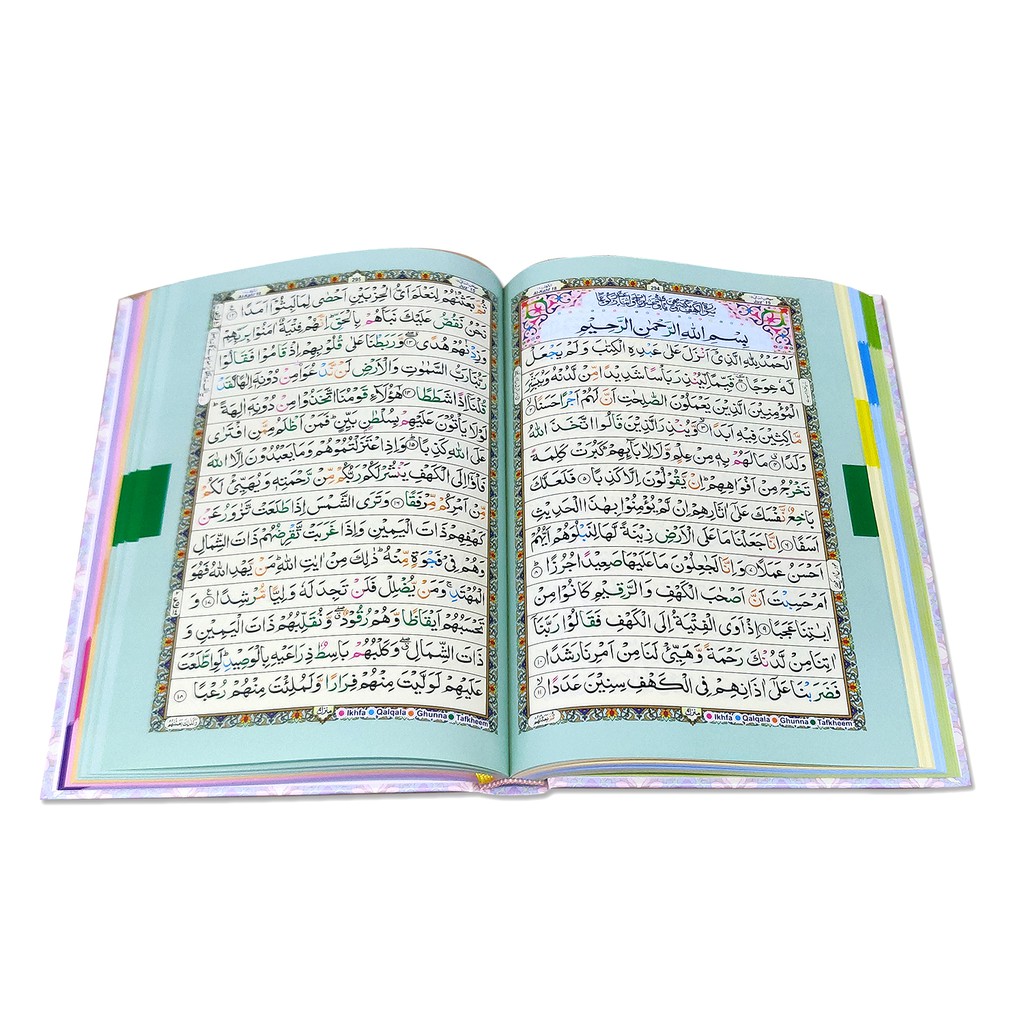 294
بِسْمِ اللهِ الرَّحْمٰنِ الرَّحِيْمِ
اَلْحَمْدُ لِلّٰهِ الَّذِيْٓ اَنْزَلَ عَلٰى عَبْدِهِ الْكِتٰبَ وَلَمْ يَجْعَلْ
لَّهٗ عِوَجًا ۱ قَيِّمًا لِّيُنْذِرَ بَاْسًا شَدِيْدًا مِّنْ لَّدُنْهُ وَيُبَشِّرَ
الْمُؤْمِنِيْنَ الَّذِيْنَ يَعْمَلُوْنَ الصّٰلِحٰتِ اَنَّ لَهُمْ اَجْرًا حَسَنًا ۲
مَّاكِثِيْنَ فِيْهِ اَبَدًا ۳ وَّيُنْذِرَ الَّذِيْنَ قَالُوا اتَّخَذَ اللهُ
وَلَدًا ۴ مَا لَهُمْ بِهٖ مِنْ عِلْمٍ وَّلَا لِاٰبَآئِهِمْ كَبُرَتْ كَلِمَةً
تَخْرُجُ مِنْ اَفْوَاهِهِمْ اِنْ يَّقُوْلُوْنَ اِلَّا كَذِبًا ۵ فَلَعَلَّكَ
بَاخِعٌ نَّفْسَكَ عَلٰٓى اٰثَارِهِمْ اِنْ لَّمْ يُؤْمِنُوْا بِهٰذَا الْحَدِيْثِ
اَسَفًا ۶ اِنَّا جَعَلْنَا مَا عَلَى الْاَرْضِ زِيْنَةً لَّهَا لِنَبْلُوَهُمْ اَيُّهُمْ
اَحْسَنُ عَمَلًا ۷ وَاِنَّا لَجٰعِلُوْنَ مَا عَلَيْهَا صَعِيْدًا جُرُزًا ۸
اَمْ حَسِبْتَ اَنَّ اَصْحٰبَ الْكَهْفِ وَالرَّقِيْمِ كَانُوْا مِنْ
اٰيٰتِنَا عَجَبًا ۹ اِذْ اَوَى الْفِتْيَةُ اِلَى الْكَهْفِ فَقَالُوْا رَبَّنَآ
اٰتِنَا مِنْ لَّدُنْكَ رَحْمَةً وَّهَيِّئْ لَنَا مِنْ اَمْرِنَا رَشَدًا ۱۰
فَضَرَبْنَا عَلٰٓى اٰذَانِهِمْ فِي الْكَهْفِ سِنِيْنَ عَدَدًا ۱۱
منزل Ikhfa Qalqala Ghunna Tafkheem
295
ثُمَّ بَعَثْنٰهُمْ لِنَعْلَمَ اَيُّ الْحِزْبَيْنِ اَحْصٰى لِمَا لَبِثُوْٓا اَمَدًا ۱۲
نَحْنُ نَقُصُّ عَلَيْكَ نَبَاَهُمْ بِالْحَقِّ اِنَّهُمْ فِتْيَةٌ اٰمَنُوْا بِرَبِّهِمْ
وَزِدْنٰهُمْ هُدًى ۱۳ وَّرَبَطْنَا عَلٰى قُلُوْبِهِمْ اِذْ قَامُوْا فَقَالُوْا
رَبُّنَا رَبُّ السَّمٰوٰتِ وَالْاَرْضِ لَنْ نَّدْعُوَا۟ مِنْ دُوْنِهٖٓ اِلٰهًا لَّقَدْ
قُلْنَآ اِذًا شَطَطًا ۱۴ هٰٓؤُلَآءِ قَوْمُنَا اتَّخَذُوْا مِنْ دُوْنِهٖٓ اٰلِهَةً
لَوْلَا يَاْتُوْنَ عَلَيْهِمْ بِسُلْطٰنٍ بَيِّنٍ فَمَنْ اَظْلَمُ مِمَّنِ افْتَرٰى
عَلَى اللهِ كَذِبًا ۱۵ وَاِذِ اعْتَزَلْتُمُوْهُمْ وَمَا يَعْبُدُوْنَ اِلَّا اللهَ
فَاْوٗٓا اِلَى الْكَهْفِ يَنْشُرْ لَكُمْ رَبُّكُمْ مِّنْ رَّحْمَتِهٖ وَيُهَيِّئْ لَكُمْ
مِّنْ اَمْرِكُمْ مِّرْفَقًا ۱۶ وَتَرَى الشَّمْسَ اِذَا طَلَعَتْ تَّزٰوَرُ عَنْ
كَهْفِهِمْ ذَاتَ الْيَمِيْنِ وَاِذَا غَرَبَتْ تَّقْرِضُهُمْ ذَاتَ الشِّمَالِ
وَهُمْ فِيْ فَجْوَةٍ مِّنْهُ ذٰلِكَ مِنْ اٰيٰتِ اللهِ مَنْ يَّهْدِ اللهُ فَهُوَ
الْمُهْتَدِ وَمَنْ يُّضْلِلْ فَلَنْ تَجِدَ لَهٗ وَلِيًّا مُّرْشِدًا ۱۷ وَ
تَحْسَبُهُمْ اَيْقَاظًا وَّهُمْ رُقُوْدٌ وَّنُقَلِّبُهُمْ ذَاتَ الْيَمِيْنِ وَ
ذَاتَ الشِّمَالِ وَكَلْبُهُمْ بَاسِطٌ ذِرَاعَيْهِ بِالْوَصِيْدِ لَوِ اطَّلَعْتَ
عَلَيْهِمْ لَوَلَّيْتَ مِنْهُمْ فِرَارًا وَّلَمُلِئْتَ مِنْهُمْ رُعْبًا ۱۸
منزل Ikhfa Qalqala Ghunna Tafkheem